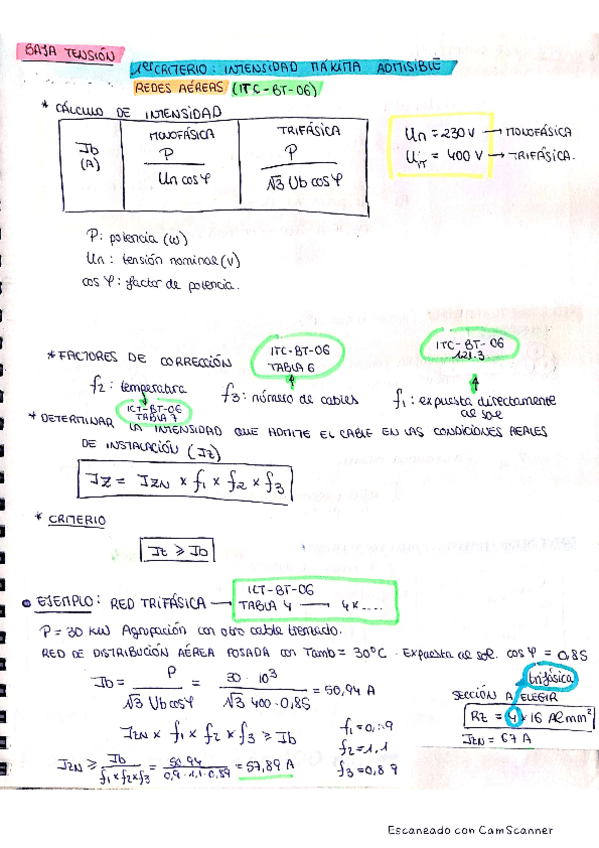 BAJA TENSIÓN
1er CRITERIO: INTENSIDAD MÁXIMA ADMISIBLE
REDES AÉREAS (ITC-BT-06)
* CÁLCULO DE INTENSIDAD
MONOFÁSICA TRIFÁSICA
Ib (A) P / Un cos φ P / √3 Ub cos φ
Un = 230 V → MONOFÁSICA
= 400 V → TRIFÁSICA.
P: potencia (w)
Un: tensión nominal (v)
cos φ: factor de potencia.
* FACTORES DE CORRECCIÓN
ITC-BT-06
TABLA 6
ITC-BT-06
121.3
f2: temperatura f3: número de cables f1: expuesta directamente al sol
ICT-BT-06
TABLA 7
* DETERMINAR LA INTENSIDAD QUE ADMITE EL CABLE EN LAS CONDICIONES REALES
DE INSTALACIÓN (Iz)
Iz = IZN × f1 × f2 × f3
* CRITERIO
Iz ⩾ Ib
EJEMPLO: RED TRIFÁSICA →
ICT-BT-06
TABLA 4 → 4×....
P = 30 KW Agrupación con otro cable trenzado.
RED DE DISTRIBUCIÓN AÉREA POSADA con Tamb = 30°C. Expuesta al sol. cos φ = 0,85
Ib = P / √3 Ub cos φ = 30·10³ / √3 400·0,85 = 50,94 A
trifásica
SECCIÓN A ELEGIR
RZ = 4×16 Al mm²
IZN = 67 A
IZN × f1 × f2 × f3 ⩾ Ib
IZN ⩾ Ib / f1×f2×f3 = 50,94 / 0,9·1,1·0,89 = 57,89 A
f2 = 1,1
f3 = 0,89
Escaneado con CamScanner